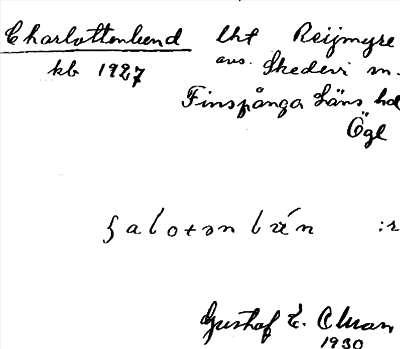 Charlottenlund lht Reijmyre
kb 1927 avs. Skedevi sn.
Finspånga läns hd
Ögl
:r
Gustaf E. Olson
1930